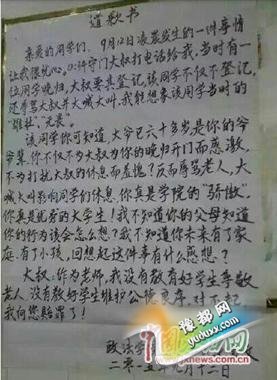 道歉书
亲爱的同学们，9月12日凌晨发生的一件事情
让我很忧心。0:15守门大叔打电话给我，当时有一
位同学晚归，大叔要其登记，该同学不仅不登记，
还辱骂大叔并大喊大叫，我能想象该同学当时的
“雄壮”、“光景”。
该同学你可知道，大爷已六十多岁是你的爷
爷辈，你不仅不为大叔为你的晚归开门而感激，
不为打扰大叔的休息而羞愧？反而辱骂老人，大
喊大叫影响同学们休息，你真是学院的“骄傲”，
你真是优秀的大学生！我不知道你的父母知道
你的行为该会怎么想？我不知道你未来有了家
庭，有了小孩，回想起这件事有什么感想？
大叔：作为老师，我没有教育好学生孝敬
老人，没有教好学生维护公德良序，对
我向您赔罪了！
政法学
二零一五年九月十二日
豫都网